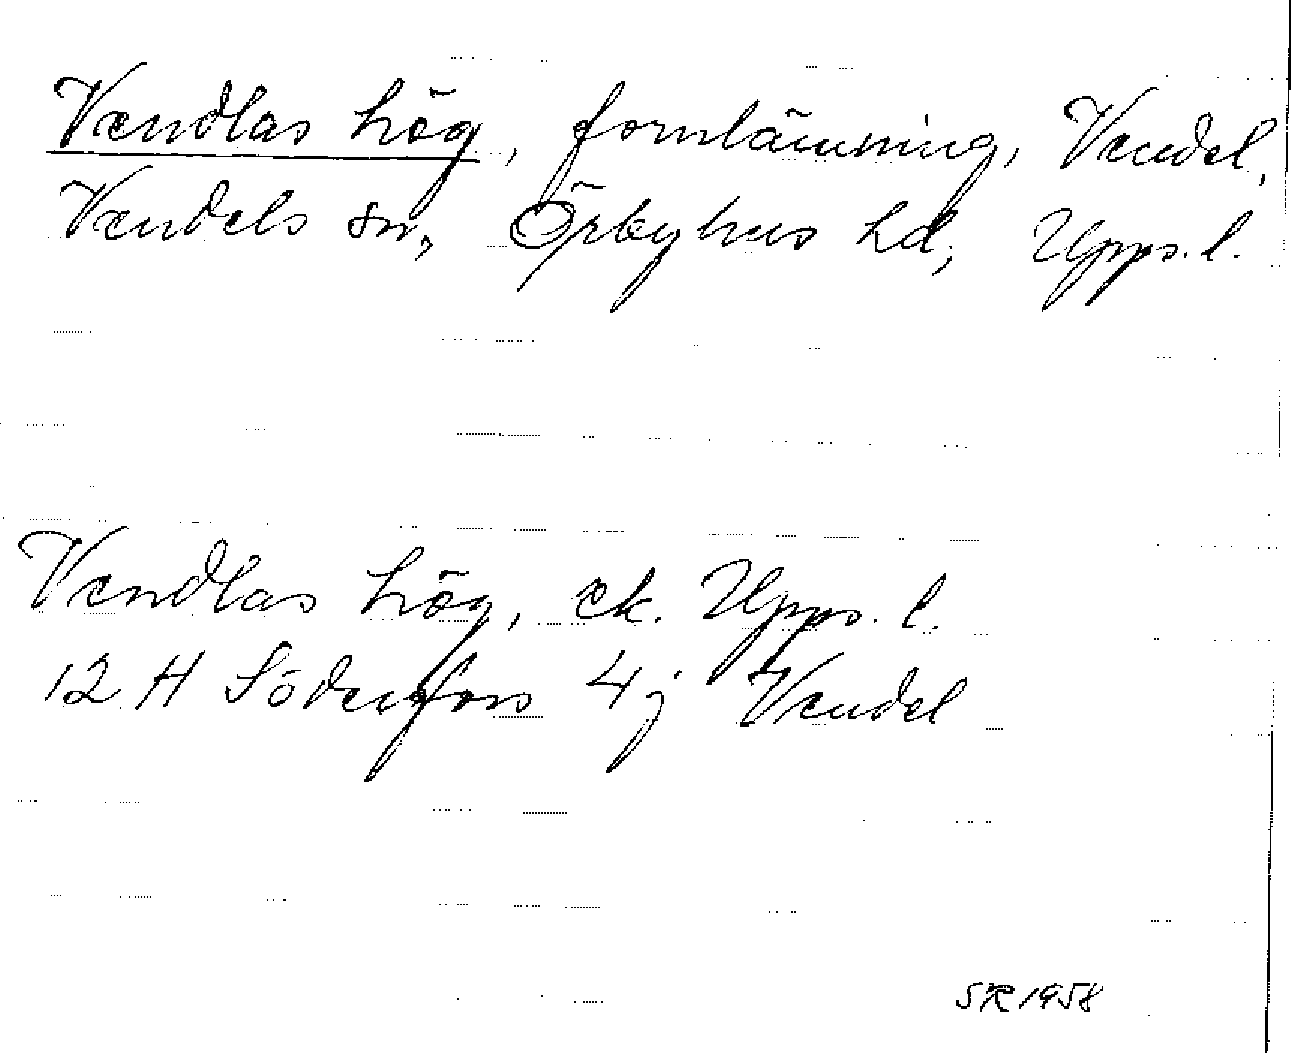 Vendlas hög, fornlämning, Vendel,
Vendels sn, Örbyhus hd, Upps. l.
Vendlas hög, ek. Upps. l.
12 H Söderfors 4 j Vendel
SR 1958